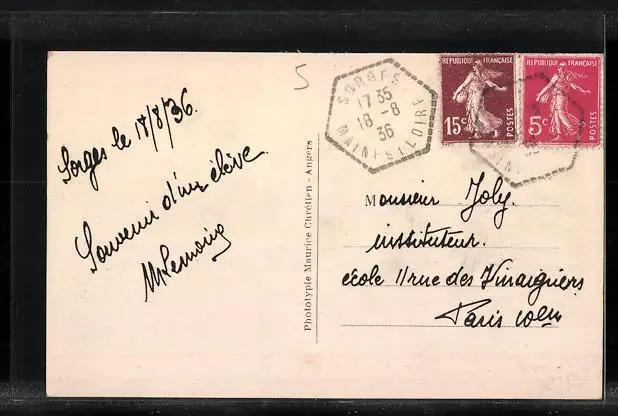 5
SORGES
17 35
18 - 8
36
MAINE ET LOIRE
REPUBLIQUE FRANÇAISE
15c
POSTES
REPUBLIQUE FRANÇAISE
5c
POSTES
Sorges le 18/8/36.
Souvenir d'un élève.
Phototypie Maurice Chrétien - Angers
Monsieur Joly.
instituteur.
école 11 rue des Vinaigriers
Paris